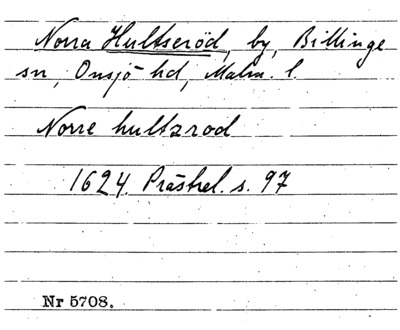 Norra Hultseröd, by, Billinge
sn, Onsjö hd, Malm. l.
Norre hultzrod
1624. Prästrel. s. 97
Nr 5708.